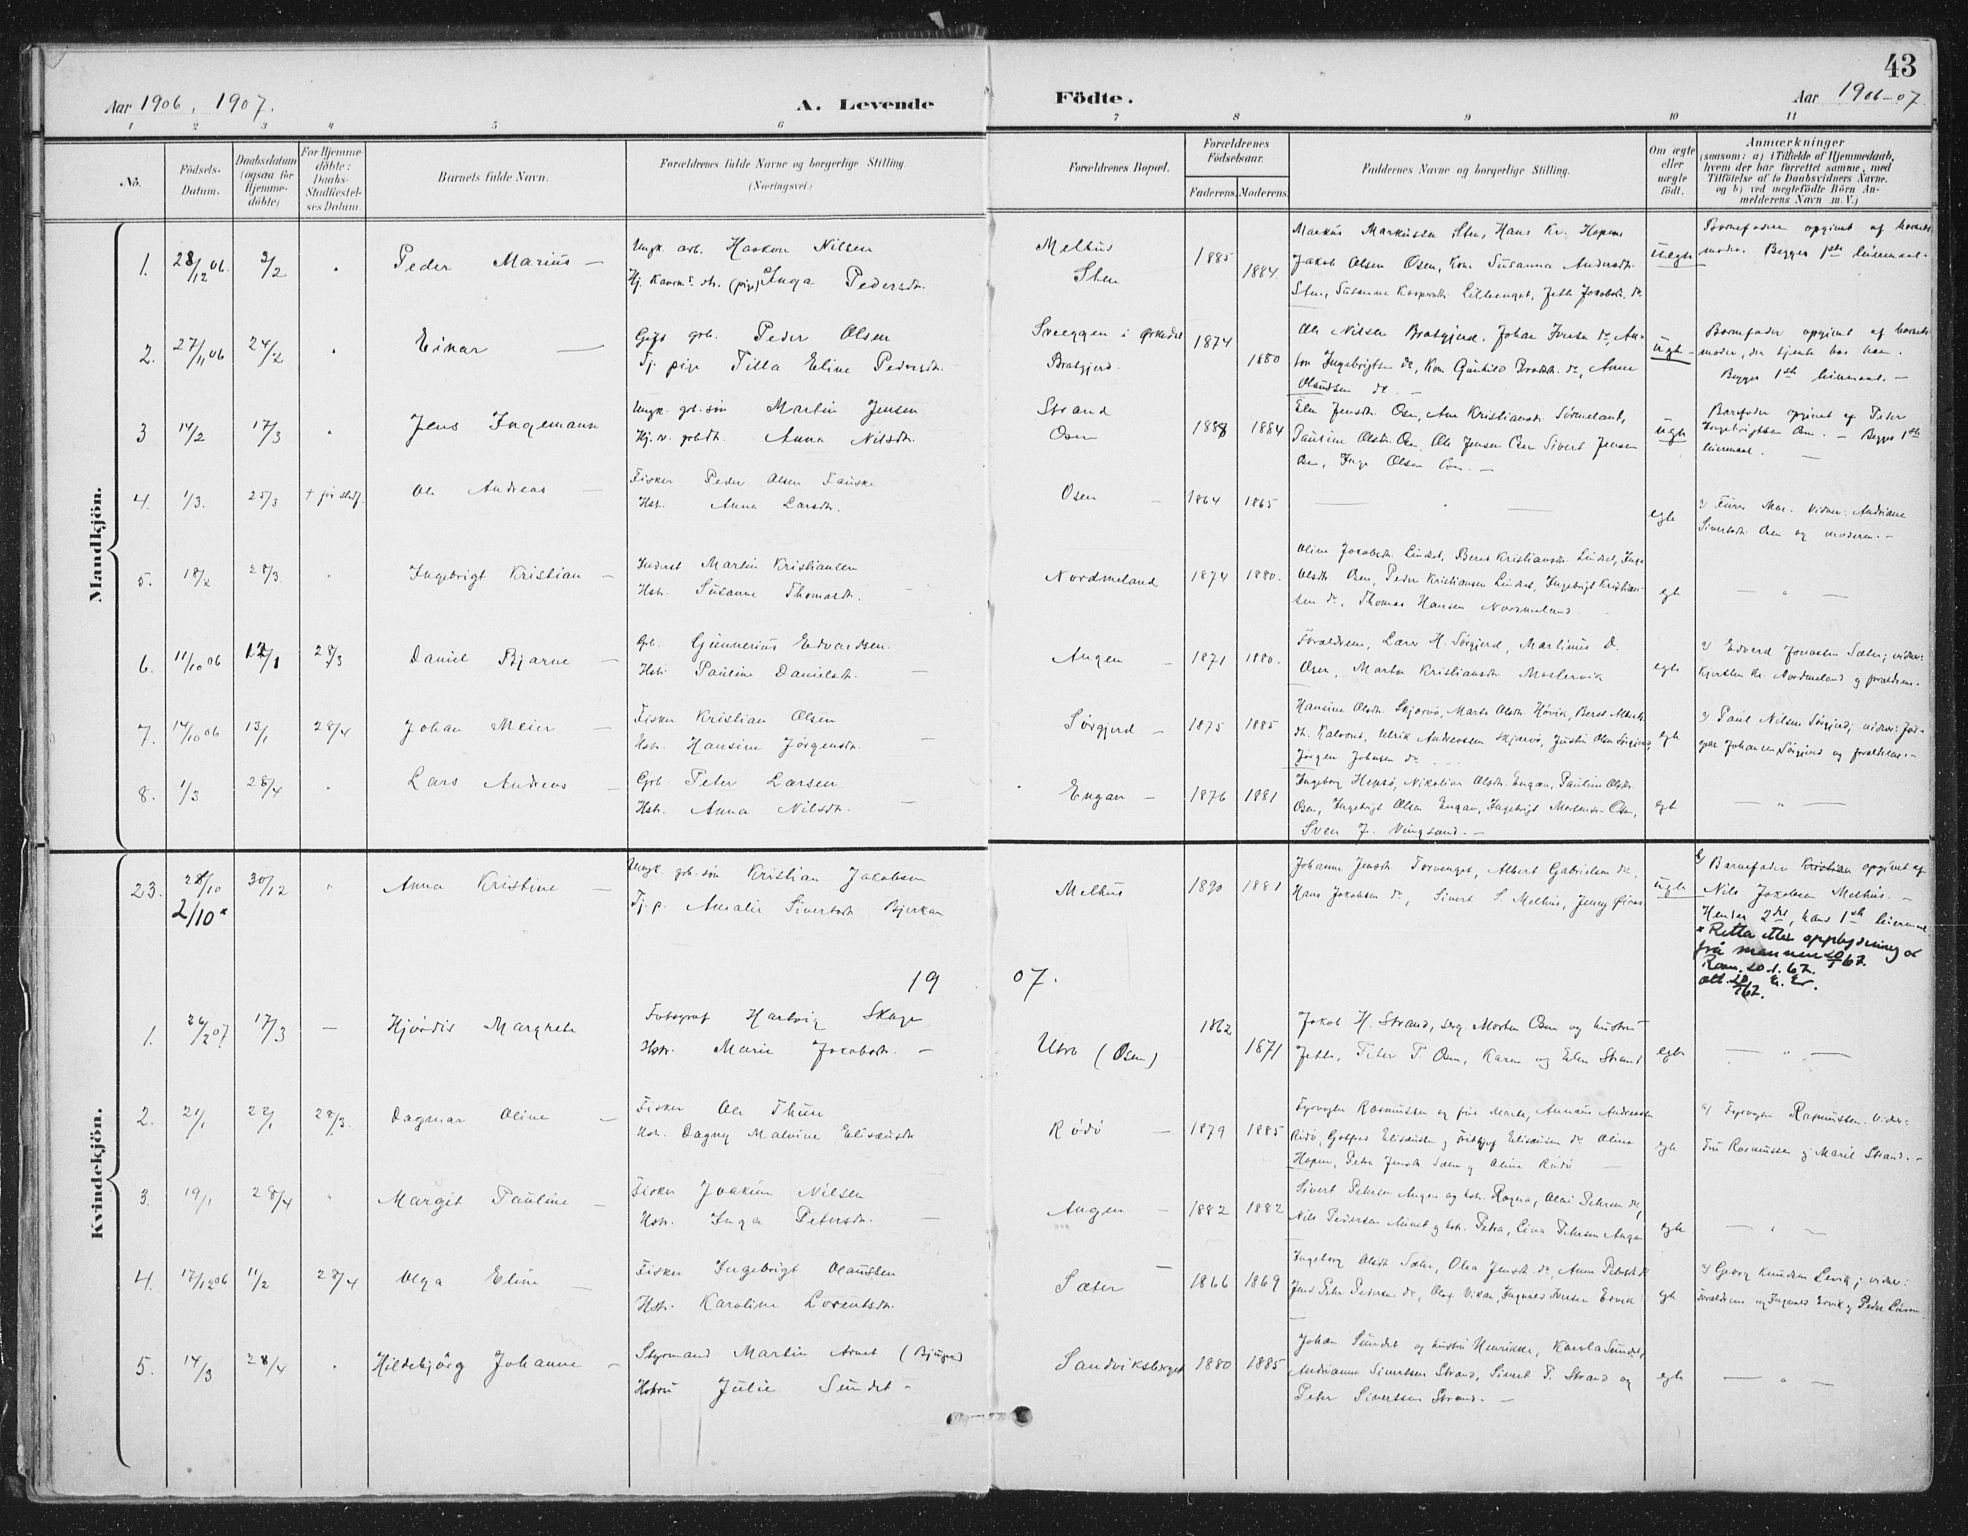 43
Aar 1906, 1907.
A. Levende
Födte.
Aar 1906-07
1 2 3 4 5 6 7 8 9 10 11
No.
Födsels-Datum.
Daabsdatum (ogsaa for Hjemme-döbte)
For Hjemme-döbte: Daabs-Stadfæstel-ses Datum.
Barnets fulde Navn.
Forældrenes fulde Navne og borgerlige Stilling.
(Næringsvei.)
Forældrenes Bopæl.
Forældrenes Födselsaar.
Faderens. Moderens.
Faddernes Navne og borgerlige Stilling.
Om ægte eller uægte födt.
Anmærkninger
(saasom: a) i Tilfælde af Hjemmedaab, hvem der har forrettet samme, med Tilföielse af to Daabsvidners Navne, og b) ved uægtefödte Börn An-melderens Navn m. V.)
Mandkjön.
1. 28/12 06. 3/2 " Peder Marius —
Ungk. arb. Haakon Nilsen
(pige) Inga Pedersdt.
Melhus
Sten
1885 1884
Markus Markussen Sten, Hans Kr. Hopen
Jakob Olsen Osen, Kone Susanna Andersdt.
Sten, Susanne Kaspersdt. Lilleenget, Jette Jakobsdt. do
uegte
Barnefader opgivet af barnets
moder. Begges 1ste leiermaal.
2. 27/11 06 24/2 " Einar —
Gift grb. Peder Olsen
Tj. pige Tilla Eline Pedersdt.
Sveeggen i Ørkedal
Bratgjerd.
1874 1880
Ole Nilsen Bratgjerd, Johan Iversen do, An-
ton Ingebrigtsen do, Kone Gunhild do, Anne
Olausen do. —
ugte
Barnefader opgivet af barnets
moder, der tjente hos ham.
Begges 1ste leiermaal. —
3 14/2 17/3 " Jens Ingemann
Ungk. grb. søn Martin Jensen
Anna Nilsdt.
Strand
Osen
1888 1884
Elen Jensdt. Osen, Ane Kristiansdt. Sørmeland,
Pauline Olsdt. Osen, Ole Jensen Osen Sivert Jensen
Osen, Inge Olsen Osen. —
ugte
Barnefader opgivet af Peter
Ingebrigtsen Osen. — Begges 1ste
leiermaal. —
4. 1/3. 25/3 Ole Andreas —
Fisker Peder Olsen Fauske
Hst. Anna Larsdt.
Osen —
1864 1865
egte
Sivertsdt. Osen og moderen. —
5. 18/2 28/3. " Ingebrigt Kristian —
Inderst Martin Kristiansen
Hst. Susanne Thomasdt. —
Nordmeland
1874 1880.
Oline Jakobsdt. Lindset, Beret Kristiansdt. Lindset, Inge
Olsdt. Osen, Peder Kristiansen Lindset, Ingebrigt Kristian-
sen do, Thomas Hansen Nordmeland.
egte
— " —
6. 11/10 06 28/3 Daniel Bjarne —
Grb. Gunnerius Edvardsen
Hst. Pauline Danielsdt. —
Angen —
1871 1880.
Forældrene, Lars H. Sørgjerd, Martinus D.
Osen, Marta Kristiansdt. Mostervik
egte
Edvard Jonassen Sæter; vidner:
Kjersten Kr. Nordmeland og forældrene. —
7. 14/10 06 13/1 28/4 Johan Meier —
Fisker Kristian Olsen
Hst. Hansine Jørgensdt.
Sørgjerd —
1875 1885
Hansine Olsdt. Skjærvø, Marta Olsdt. Høvik, Beret Alberts-
dt. Kalvøset, Ulrik Andreassen Skjærvø, Justin Olsen Sørgjerd,
Jørgen Johnsen do.
egte
Paul Nilsen Sørgjerd; vidner: Jes-
per Johansen Sørgjerd og forældrene. —
8. 1/3 28/4 " Lars Andreas —
Grb. Peter Larsen
Hst. Anna Nilsdt. —
Engan —
1876 1881
Ingeborg Hepsø, Nikoline Olsdt. Engan, Pauline Olsdt.
Osen, Ingebrigt Olsen Engan, Ingebrigt Mortensen Osen,
Sven J. Vingsand. —
egte
— " —
Kvindekjön.
23. 28/10 30/12 " Anna Kristine —
2/10 *
Ungk. grb. søn Kristian Jakobsen
Tj. p. Amalie Sivertsdt. Bjerkan
Melhus
1890 1881
Johanna Jensdt. Torvenget, Albert Gabrielsen do,
Hans Jakobsen do, Sivert S. Melhus, Jenny
ugte
Barnefader Kristian opgivet af
Nils Jakobsen Melhus. —
Hendes 2det, hans 1ste leiermaal.
* Retta etter opplysning
frå mannen 20/1 67.
Rom. 20.1.67.
1907.
1. 26/2 07 17/3 — Hjørdis Margrete
Fotograf Hartvig Skage
Hstr. Marie Jakobsdt. —
Utro (Osen)
1862 1871
Jakob H. Strand, serg. Morten Osen og hustru
Jette, Peter P. Osen, Karen og Elen Strand
egte
— " —
2. 21/1 22/1 28/3. Dagmar Oline —
Fisker Ole Thun
Hst. Dagny Malvine Elisæusdt.
Rødø —
1879 1885
Fyrvogter Rasmussen og frue Marta, Annæus Andreassen
Rødø, Gotfred Elisæusen og Elisæusen do Oline
Hopen, Petra Jensdt. Sæter og Oline Rødø —
egte
Fyrvogter Rasmussen. Vidner:
Fru Rasmussen og Marie Strand. —
3. 19/1 28/4 " Margit Pauline —
Fisker Joakim Nilsen
Hst. Inga Petersdt. —
Angen —
1882 1882
Sivert Petersen Angen og hst. Ragna, Olai Petersen do,
Nils Pedersen Aunet og hst. Petra, Lina Petersen Angen
egte
— " —
4. 17/12 06 11/2 28/4 Olga Eline —
Fisker Ingebrigt Olaussen
Hst. Karoline Lorentsdt.
Sæter —
1866 1869
Ingeborg Olsdt. Sæter, Olea Jensdt. do, Anne Petersdt. do
Jens Peter Petersen do, Olaf Vikan, Ingvald Iversen Ervik
egte
Georg Knudsen Lervik; vidner:
Forældrene og Ingvald Ervik og Peder
5. 14/3 28/4 " Hildebjørg Johanne —
Styrmand Martin Arnet (Bjugn)
Hustru Julie Sundet —
Sandviksberget
1880 1885
Johan Sundet og hustru Henrikke, Karola Sundet,
Andrianna Sivertsen Strand, Sivert P. Strand og
Peter Sivertsen Strand. —
egte
— " —